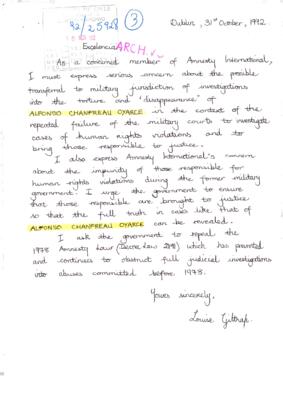 92/25928
3
Dublin, 31st October, 1992.
Excelencia ARCH
As a concerned member of Amnesty International,
I must express serious concern about the possible
transferral to military jurisdiction of investigations
into the torture and "disappearance" of
ALFONSO CHANFREAU OYARCE in the context of the
repeated failure of the military courts to investigate
cases of human rights violations and to
bring those responsible to justice.
I also express Amnesty International's concern
about the impunity of those responsible for
human rights violations during the former military
government. I urge the government to ensure
that those responsible are brought to justice
so that the full truth in cases like that of
ALFONSO CHANFREAU OYARCE can be revealed.
I ask the government to repeal the
1978 Amnesty Law (Decree Law 2191) which has prevented
and continues to obstruct full judicial investigations
into abuses committed before 1978.
Yours sincerely,
Louise